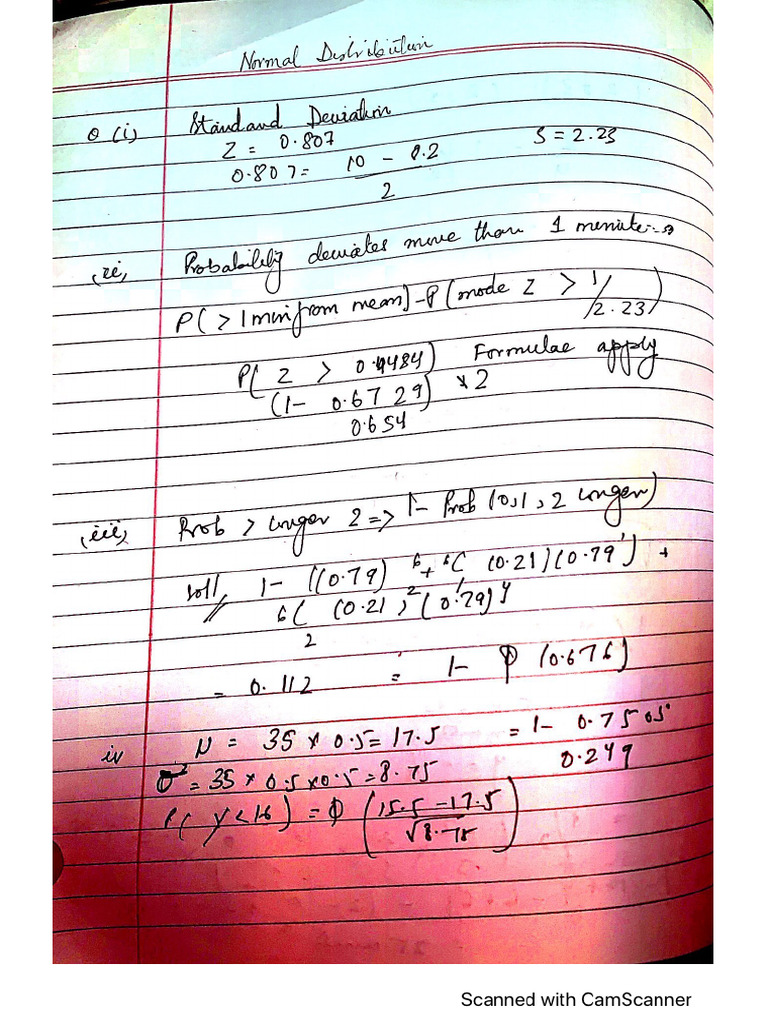 Normal Distribution
Q (i) Standard Deviation
Z = 0.807 S = 2.23
0.807 = 10 - 8.2
2
ii, Probability deviates more than 1 menute
P( > 1 min from mean) - P (mode Z > 1/2.23)
P( Z > 0.4484) Formulae apply
(1- 0.6729) × 2
0.654
iii, Prob > longer 2 => 1- Prob (0,1,2 longer)
soll, 1- ((0.79)⁶ + ⁶C (0.21)(0.79') +
6C (0.21)² (0.79)4
2
= 0.112 = 1- φ (0.676)
iv N = 35 × 0.5 = 17.5 = 1- 0.7505
σ² = 35 × 0.5 × 0.5 = 8.75 0.249
P( Y < 16 ) = φ (15.5 - 17.5
√8.75)
Scanned with CamScanner